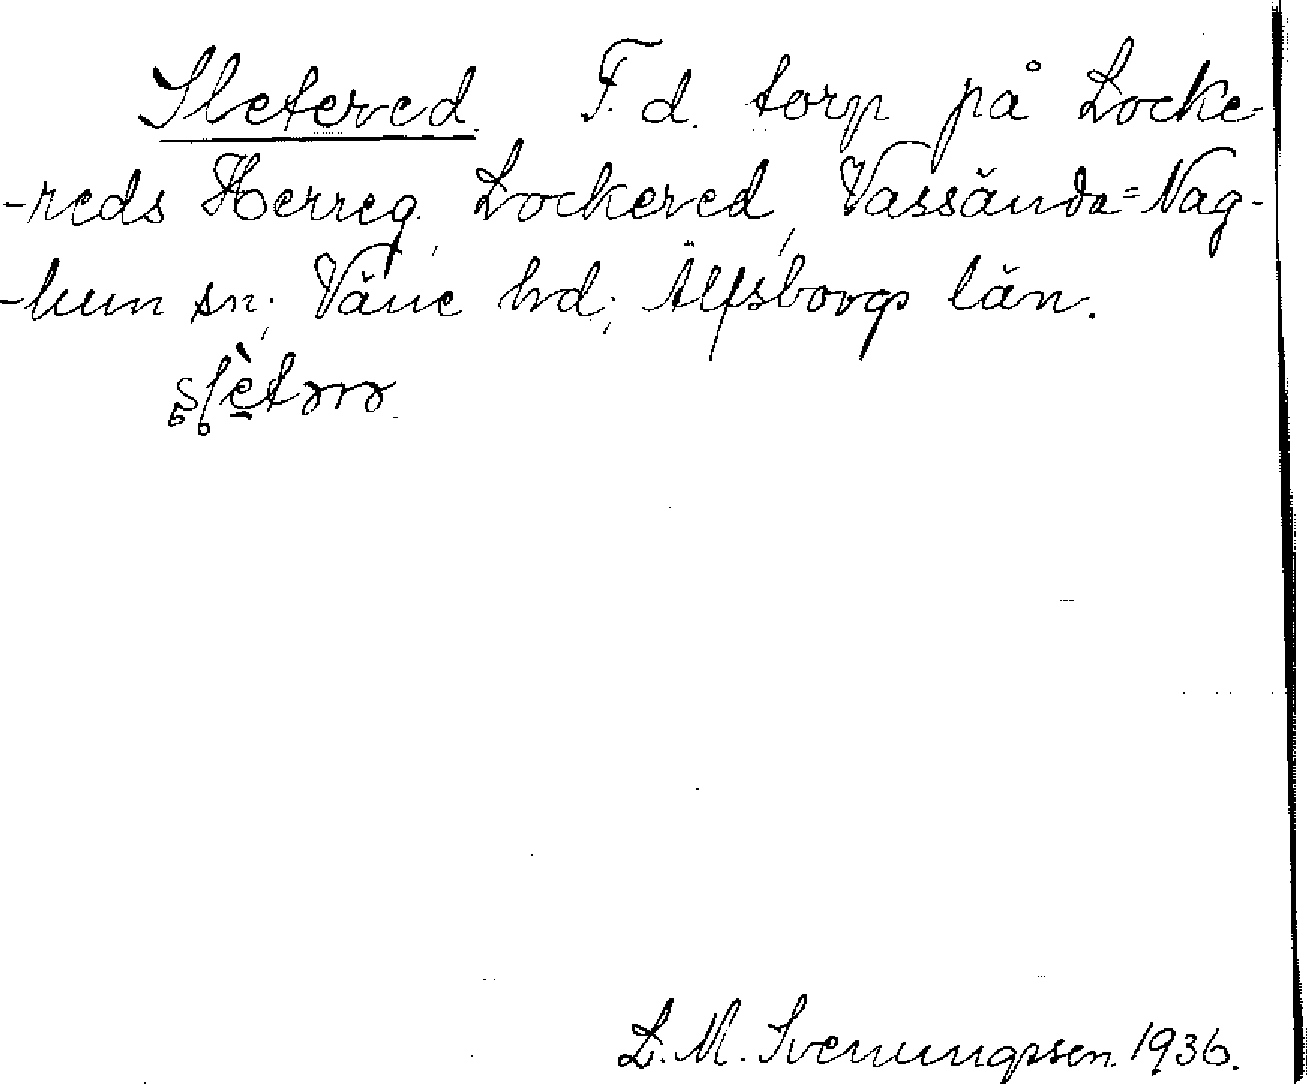 Sletered. F. d. torp på Locke-
-reds Herreg., Lockered, Vassända=Nag-
-lum sn; Väne hd; Älfsborgs län.
L. M. Svenungsson. 1936.